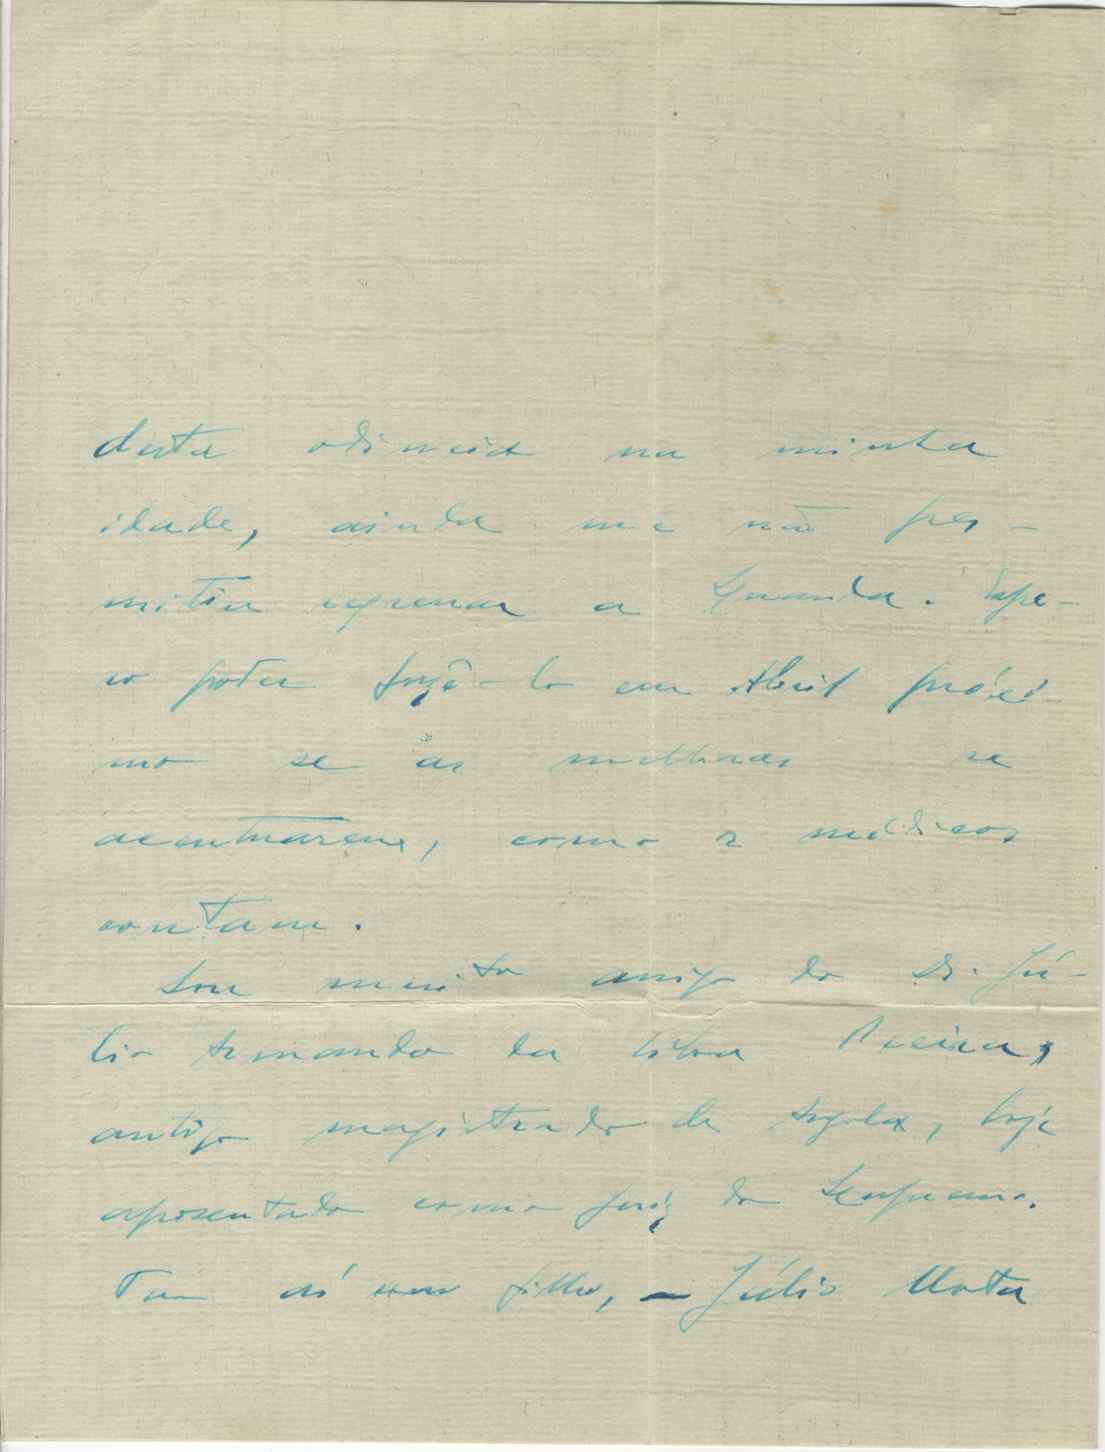 desta          na minha
idade, ainda me não per-
mitiu regressar a Luanda. Espe-
ro poder fazê-lo em Abril próxi-
mo se as melhoras se
acentuarem, como os médicos
contam.
Sou muito amigo do Dr. Jú-
lio Armando da Silva Pereira,
antigo magistrado de Angola, hoje
aposentado como juiz do Supremo.
Tem aí seu filho, — Júlio Mota